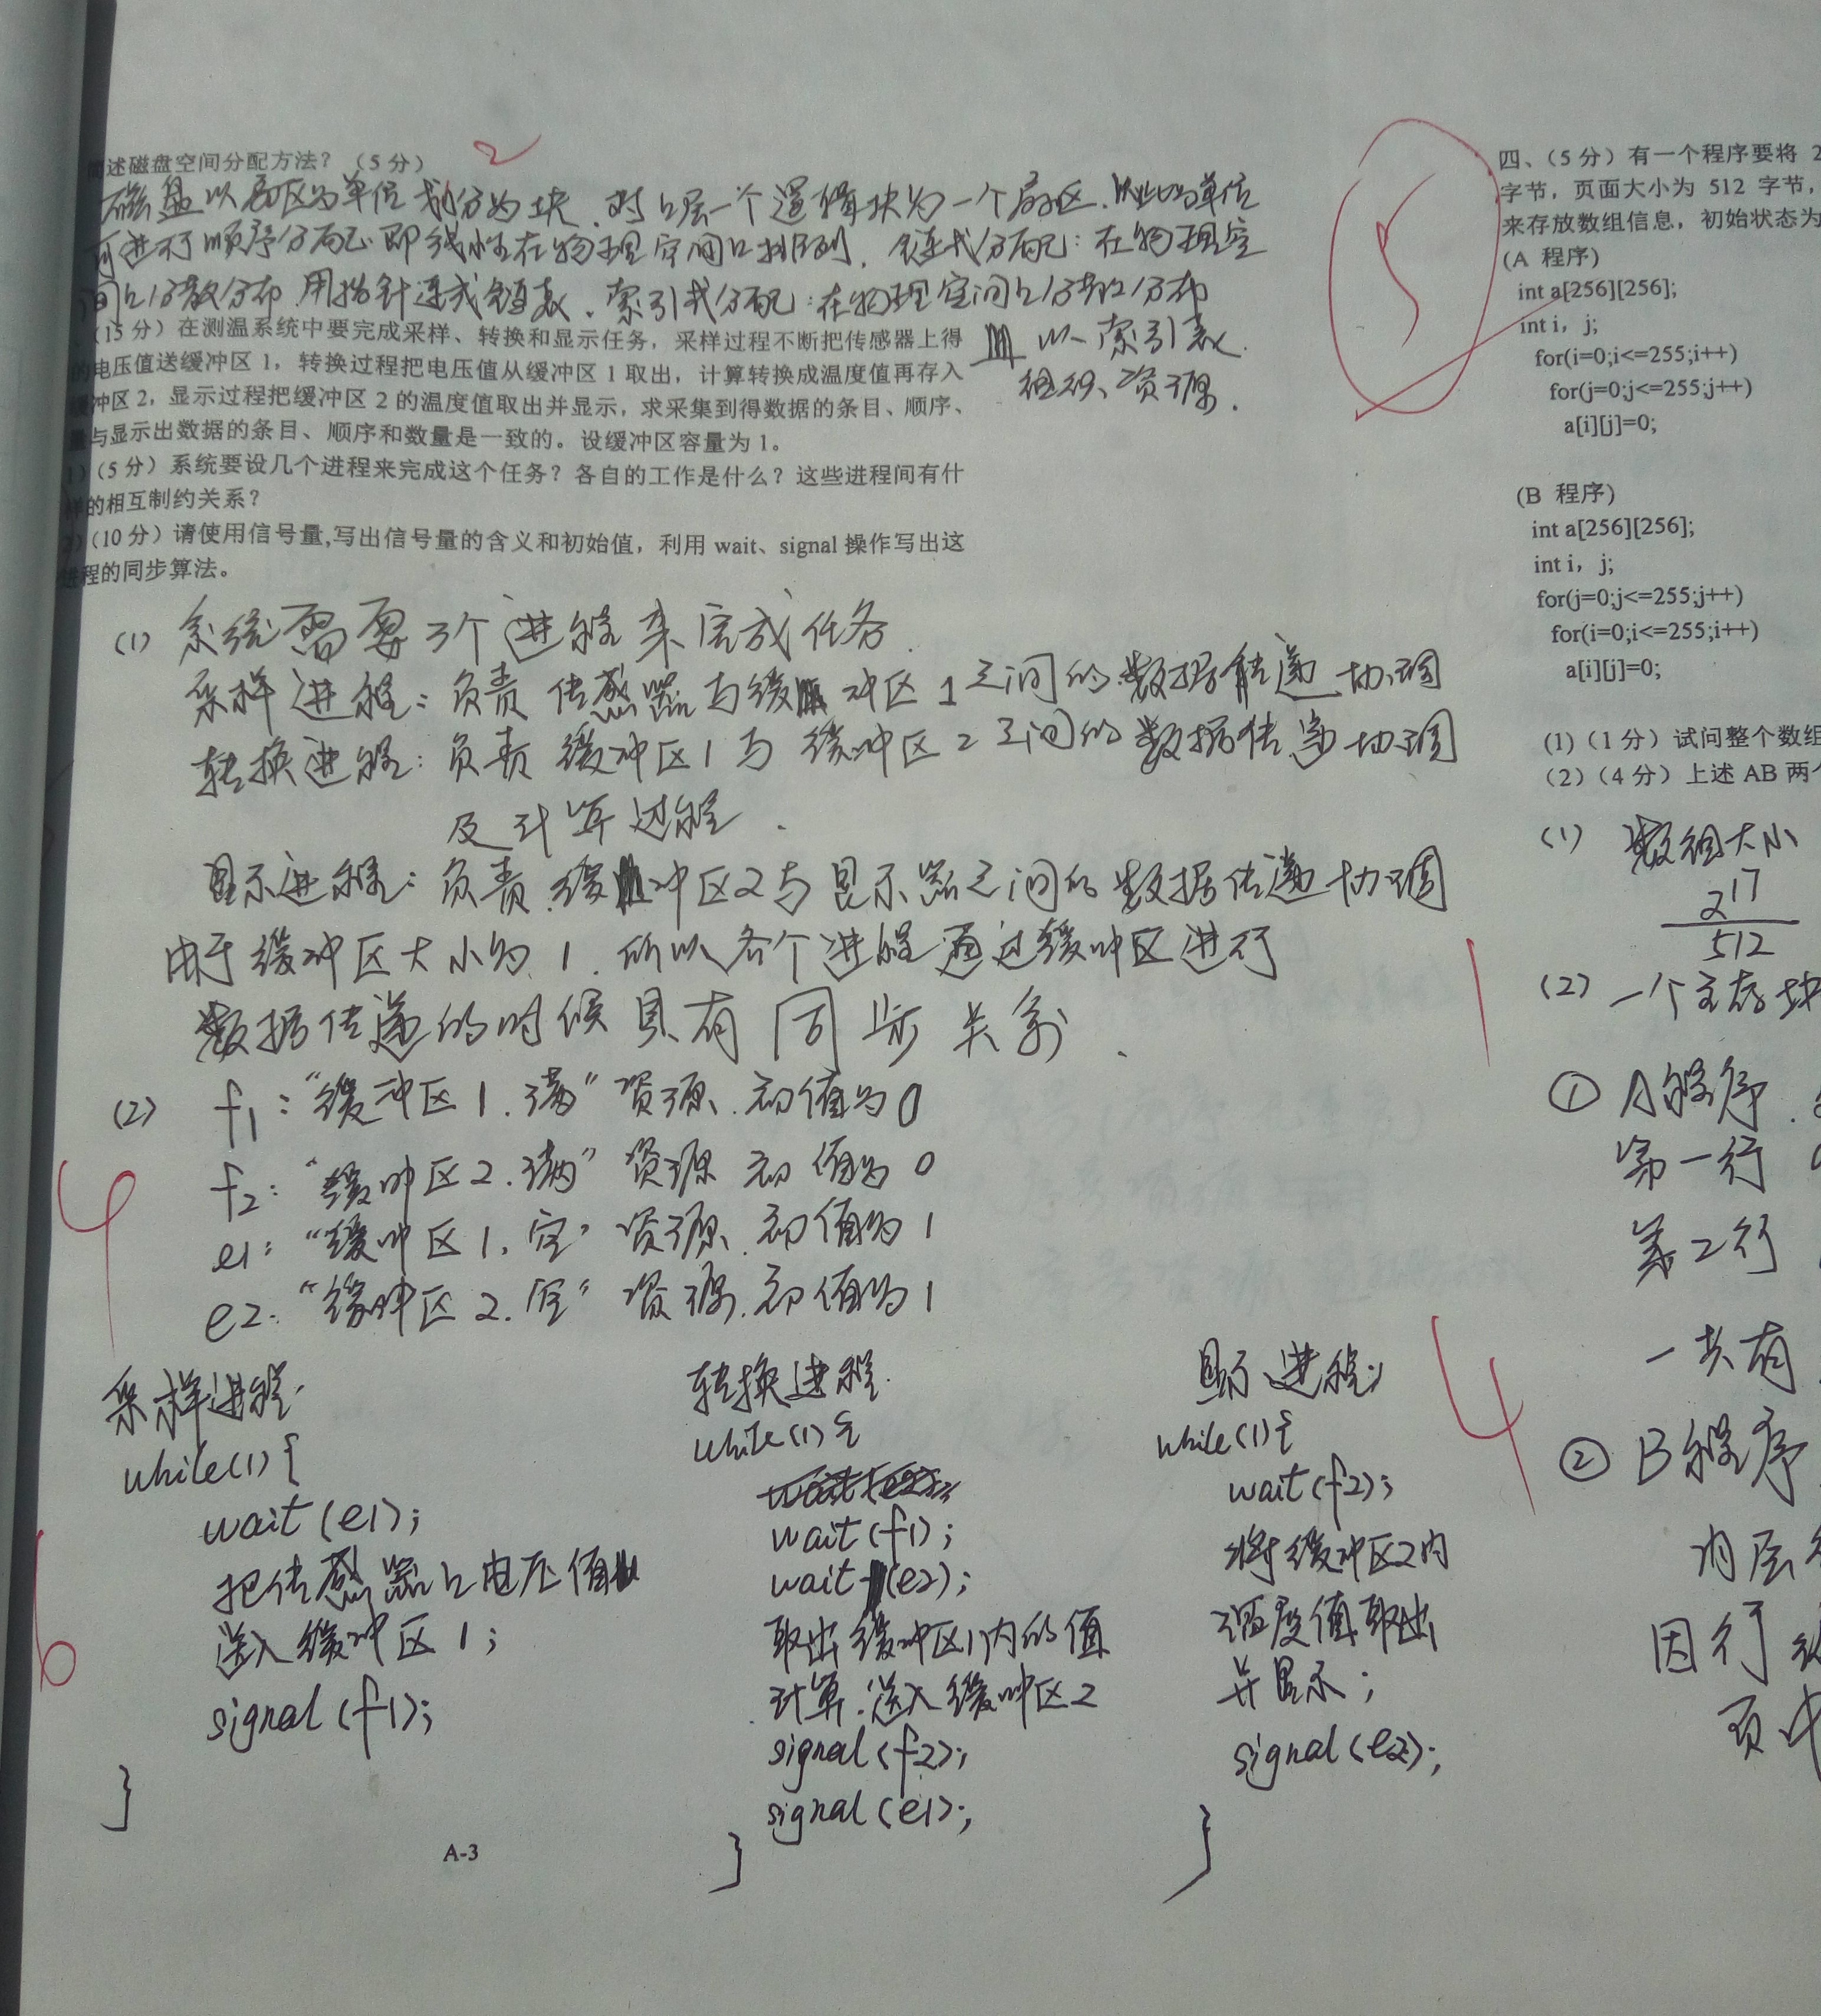 述磁盘空间分配方法？（5 分）
2
磁盘以扇区为单位划分为块．对上层一个逻辑块为一个扇区．以此为单位
可进行顺序分配 即线性在物理空间上排列．链式分配：在物理空
间上分散分布 用指针连成链表．索引式分配：在物理空间上分散分布
且以一索引表
组织资源．
（15 分）在测温系统中要完成采样、转换和显示任务，采样过程不断把传感器上得
的电压值送缓冲区 1，转换过程把电压值从缓冲区 1 取出，计算转换成温度值再存入
缓冲区 2，显示过程把缓冲区 2 的温度值取出并显示，求采集到得数据的条目、顺序、
量与显示出数据的条目、顺序和数量是一致的。设缓冲区容量为 1。
1）（5 分）系统要设几个进程来完成这个任务？各自的工作是什么？这些进程间有什
样的相互制约关系？
2）（10 分）请使用信号量,写出信号量的含义和初始值，利用 wait、signal 操作写出这
进程的同步算法。
(1) 系统需要3个进程来完成任务．
采样进程：负责传感器与缓冲区1之间的数据传递协调
转换进程：负责缓冲区1与缓冲区2之间的数据传递协调
及计算过程．
显示进程：负责缓冲区2与显示器之间的数据传递协调
由于缓冲区大小为1．所以各个进程通过缓冲区进行
数据传递的时候具有同步关系．
(2) f1："缓冲区1.满"资源．初值为0
f2："缓冲区2.满"资源 初值为0
e1："缓冲区1.空"资源．初值为1
e2："缓冲区2.空"资源．初值为1
4
采样进程：
while(1){
wait(e1);
把传感器上电压值
送入缓冲区1;
signal(f1);
}
6
转换进程．
while(1){
wait(f1);
wait(e2);
取出缓冲区1内的值
计算．送入缓冲区2
signal(f2);
signal(e1);
}
显示进程：
while(1){
wait(f2);
将缓冲区2内
温度值取出
并显示;
signal(e2);
}
A-3
5
四、（5 分）有一个程序要将 2
字节，页面大小为 512 字节，
来存放数组信息，初始状态为
(A 程序)
int a[256][256];
int i，j;
for(i=0;i<=255;i++)
for(j=0;j<=255;j++)
a[i][j]=0;
(B 程序)
int a[256][256];
int i，j;
for(j=0;j<=255;j++)
for(i=0;i<=255;i++)
a[i][j]=0;
(1)（1 分）试问整个数组
(2)（4 分）上述 AB 两个
(1) 数组大小
2^17
512
1
(2) 一个主存块
① A程序．
第一行
第2行
一共有
4
② B程序
内层
因行
页中